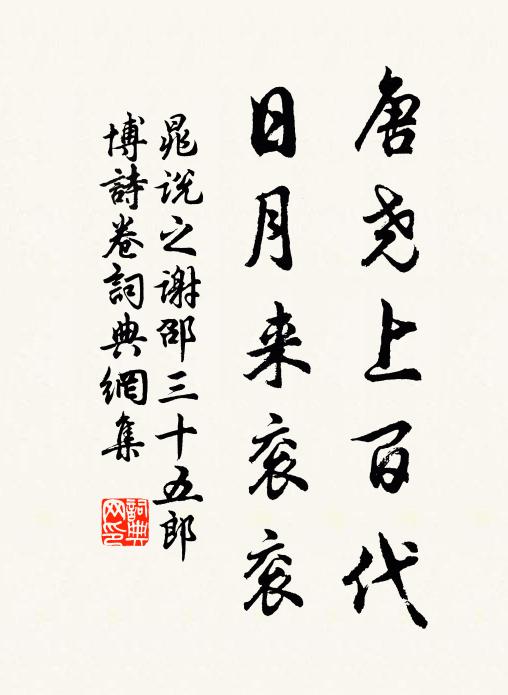 唐尧上百代
日月来衮衮
晁说之谢邵三十五郎
博詩卷詞典網集
詞典网印